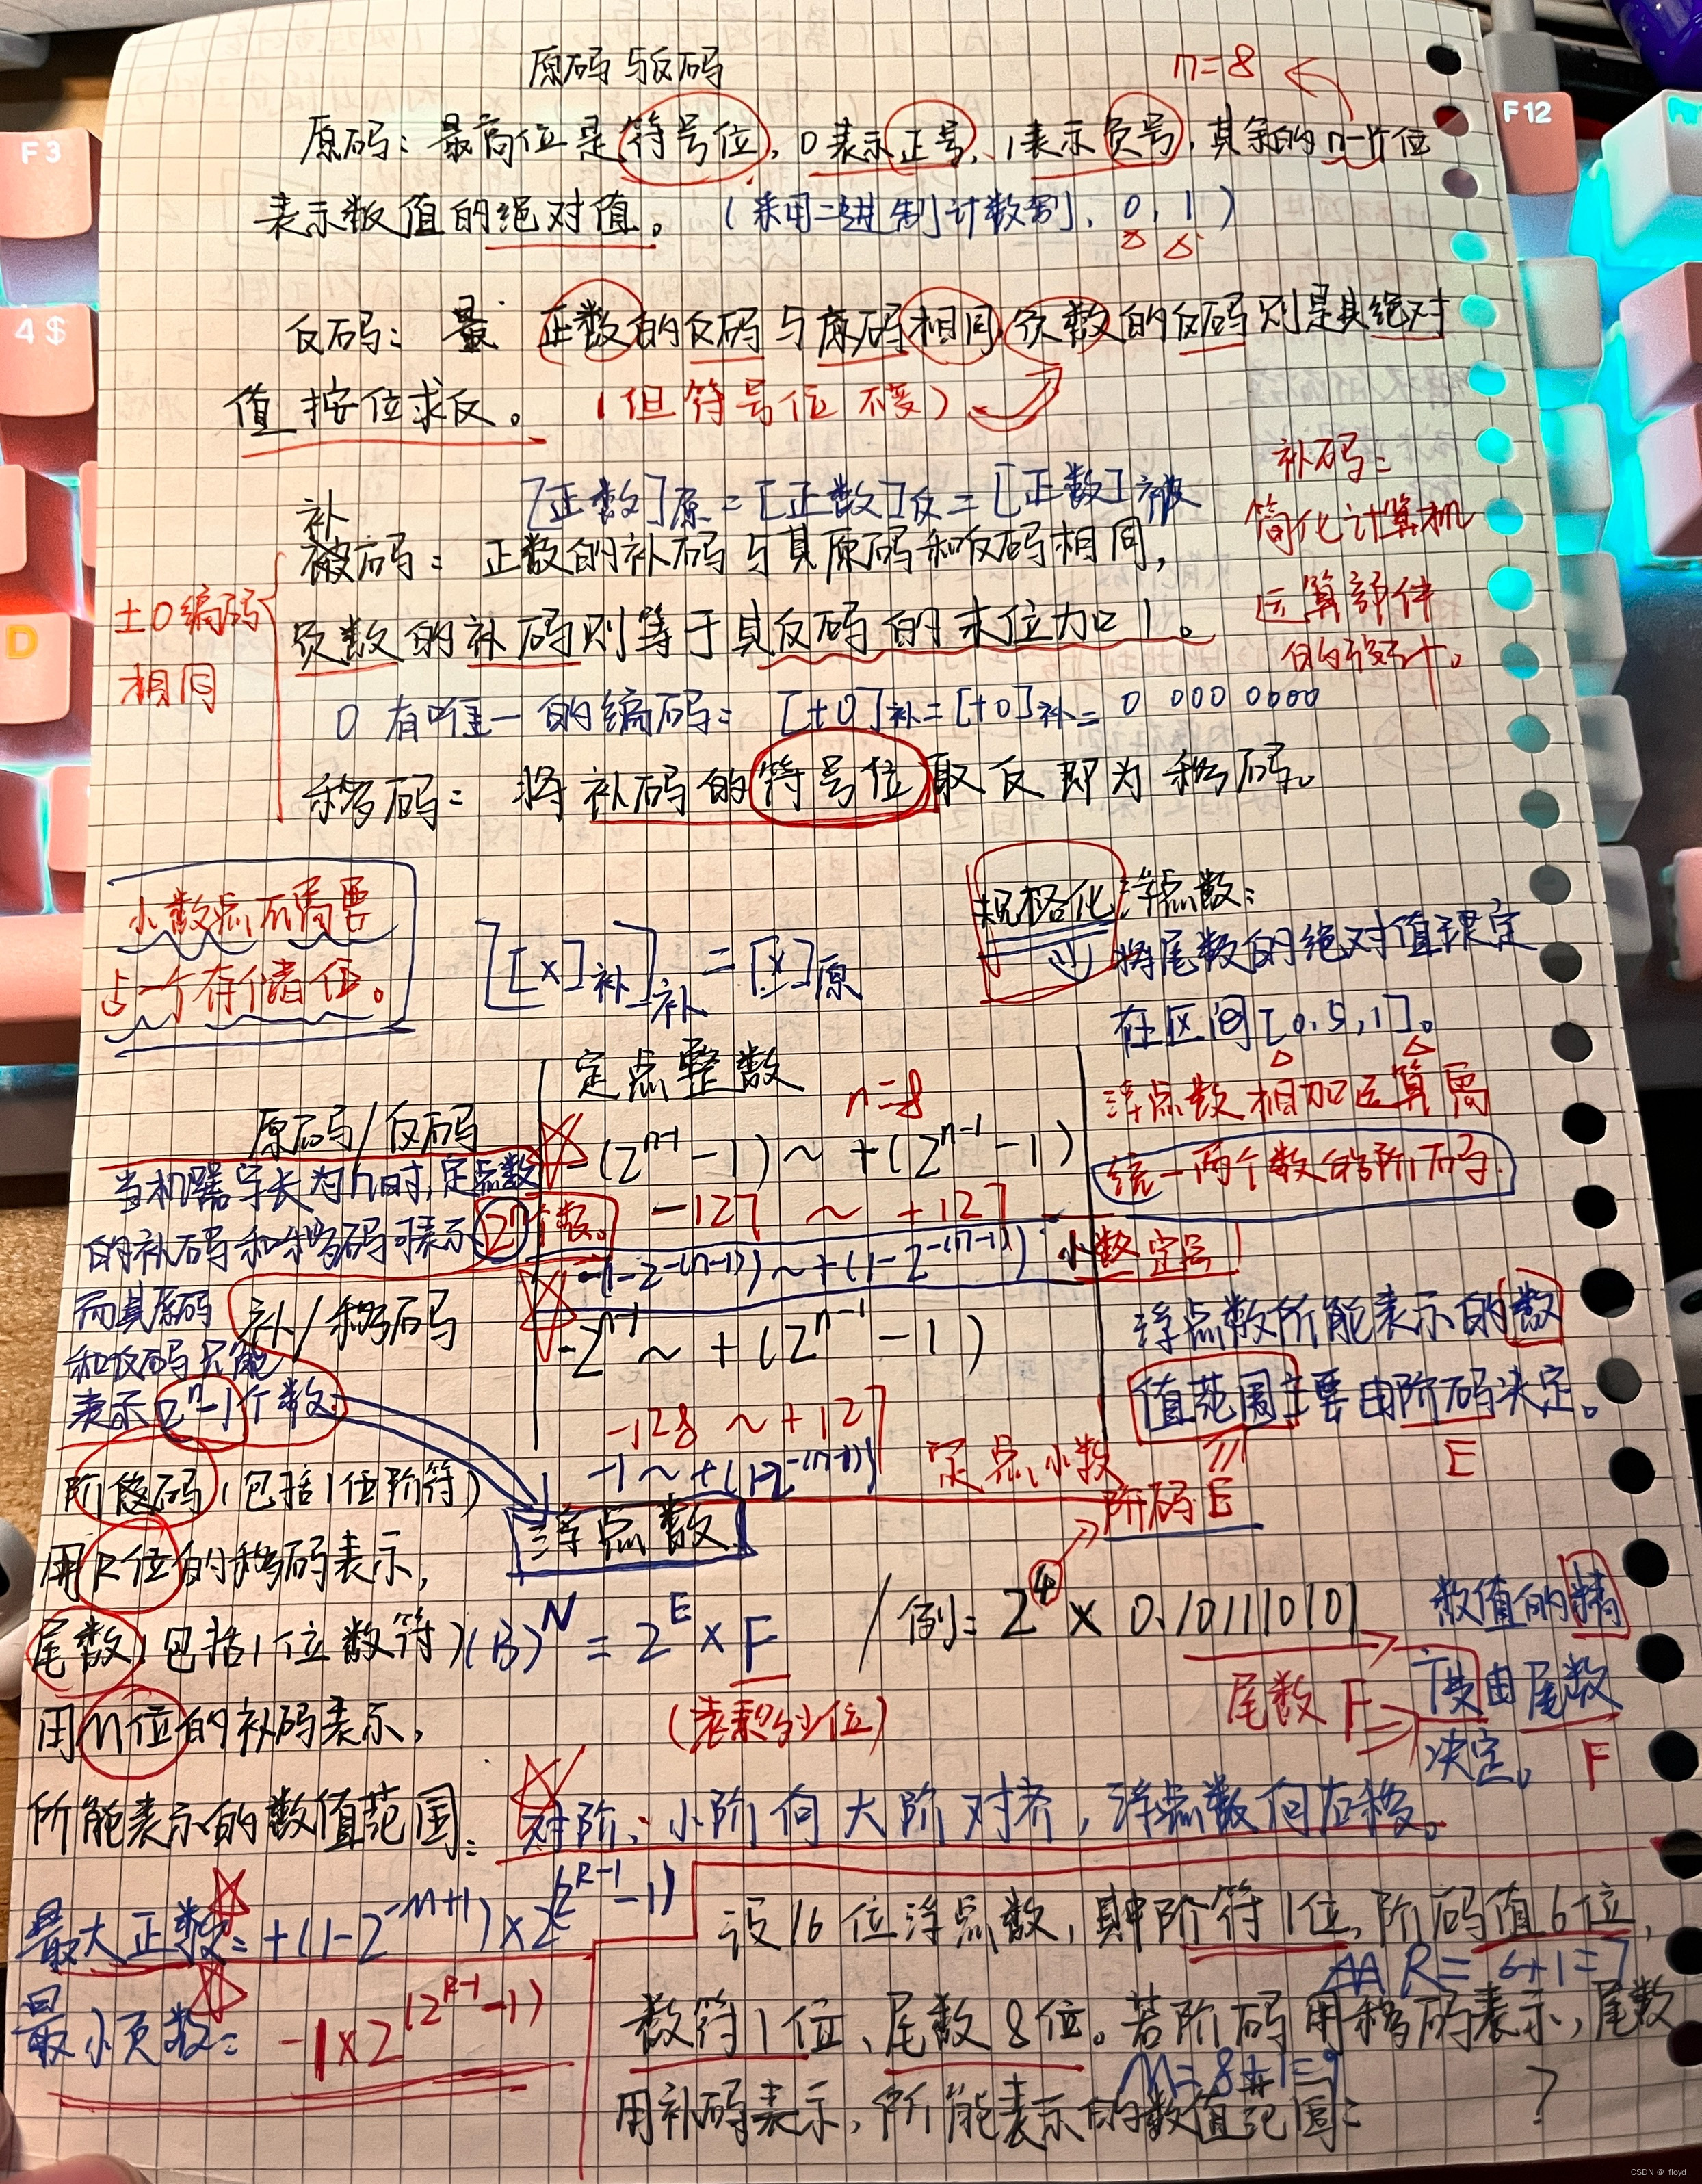 原码与反码
n=8
原码：最高位是符号位，0表示正号，1表示负号，其余的n-1个位
表示数值的绝对值。（采用二进制计数制，0，1）
反码：最 正数的反码与原码相同，负数的反码则是其绝对
值按位求反。（但符号位不变）
[正数]原=[正数]反=[正数]补
补码：
简化计算机
运算部件
的设计。
补
被码：正数的补码与其原码和反码相同，
负数的补码则等于其反码的末位加1。
±0编码
相同
0有唯一的编码：[+0]补=[+0]补=0 000 0000
移码：将补码的符号位取反即为移码。
小数点后需要
占一个存储位。
[[x]补]补=[x]原
规格化浮点数：
将尾数的绝对值限定
在区间[0.5,1]。
浮点数相加运算需
统一两个数的阶码。
定点整数
n=8
原码/反码
-(2^{n-1}-1)~+(2^{n-1}-1)
-127 ~ +127
-(1-2^{-(n-1)})~+(1-2^{-(n-1)})
小数定点
当机器字长为n时，定点数
的补码和移码可表示2^n个数。
而其原码
和反码只能
表示2^n-1个数。
补/移码
-2^{n-1} ~ +(2^{n-1}-1)
-128 ~ +127
-1~+(1-2^{-(n-1)})
定点小数
浮点数所能表示的数
值范围主要由阶码决定。
E
阶码（包括1位阶符）
用R位的移码表示，
尾数（包括1位数符）
用M位的补码表示，
所能表示的数值范围：
浮点数
阶码E
(B)^N=2^E×F
/例：2^4×0.101110101
尾数F
数值的精
度由尾数
决定。
F
对阶：小阶向大阶对齐，浮点数向右移。
最大正数=+(1-2^{-M+1})×2^{(2^{R-1}-1)}
最小负数=-1×2^{(2^{R-1}-1)}
设16位浮点数，其中阶符1位、阶码值6位，
R=6+1=7
数符1位、尾数8位。若阶码用移码表示，尾数
M=8+1=9
用补码表示，所能表示的数值范围：？
F3
F12
4 $
D
CSDN @_floyd_